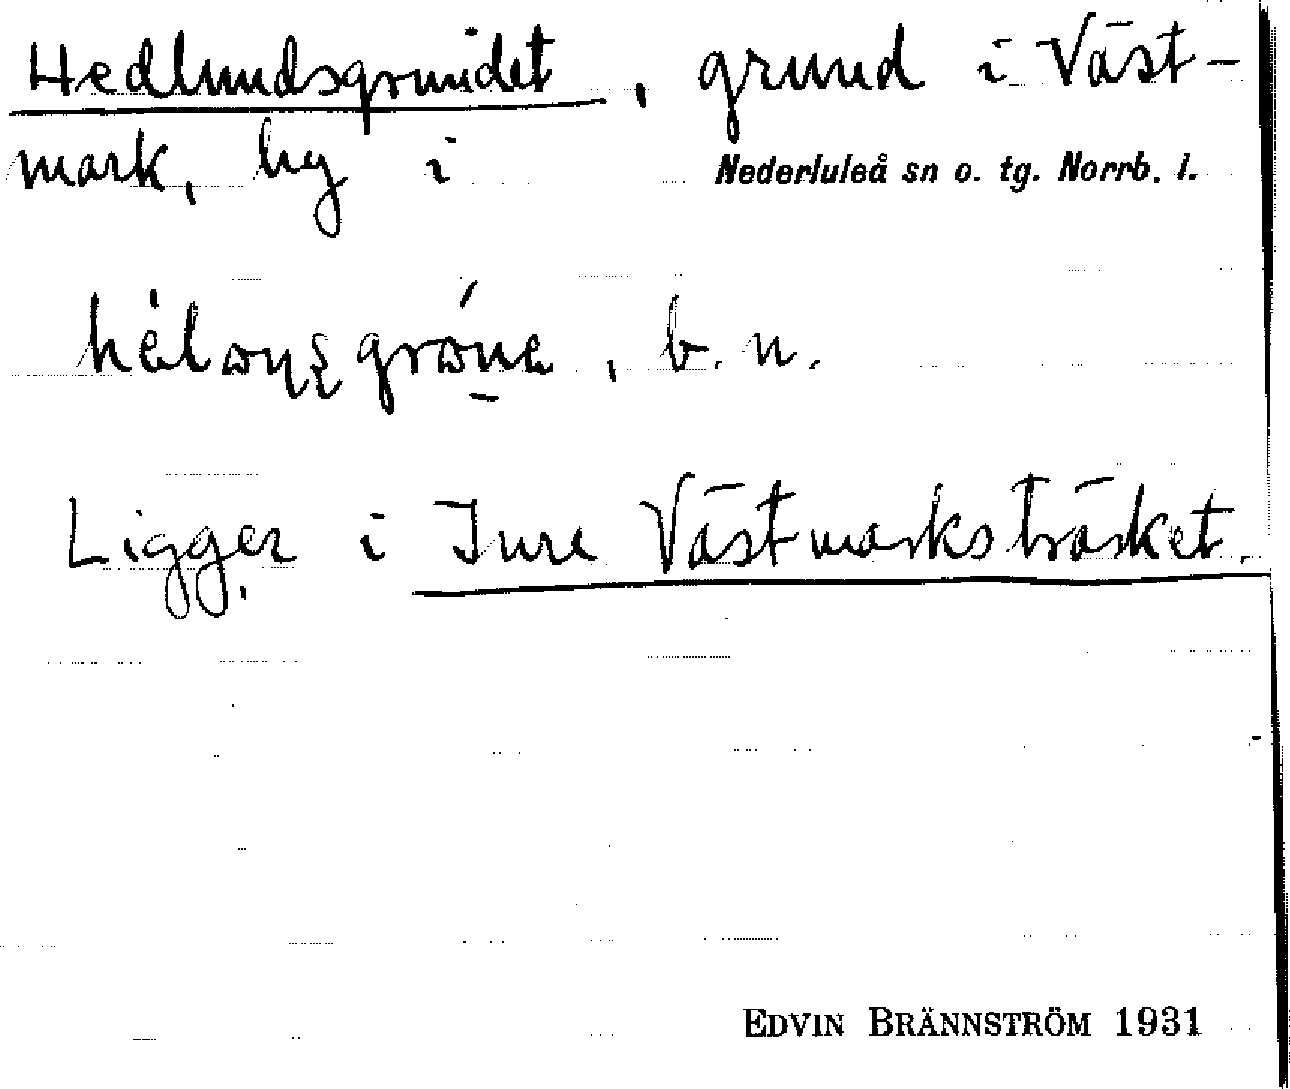 Hedlundsgrundet, grund i Väst-
mark, by i Nederluleå sn o. tg. Norrb. l.
b. n.
Ligger i Inre Västmarksträsket.
EDVIN BRÄNNSTRÖM 1931